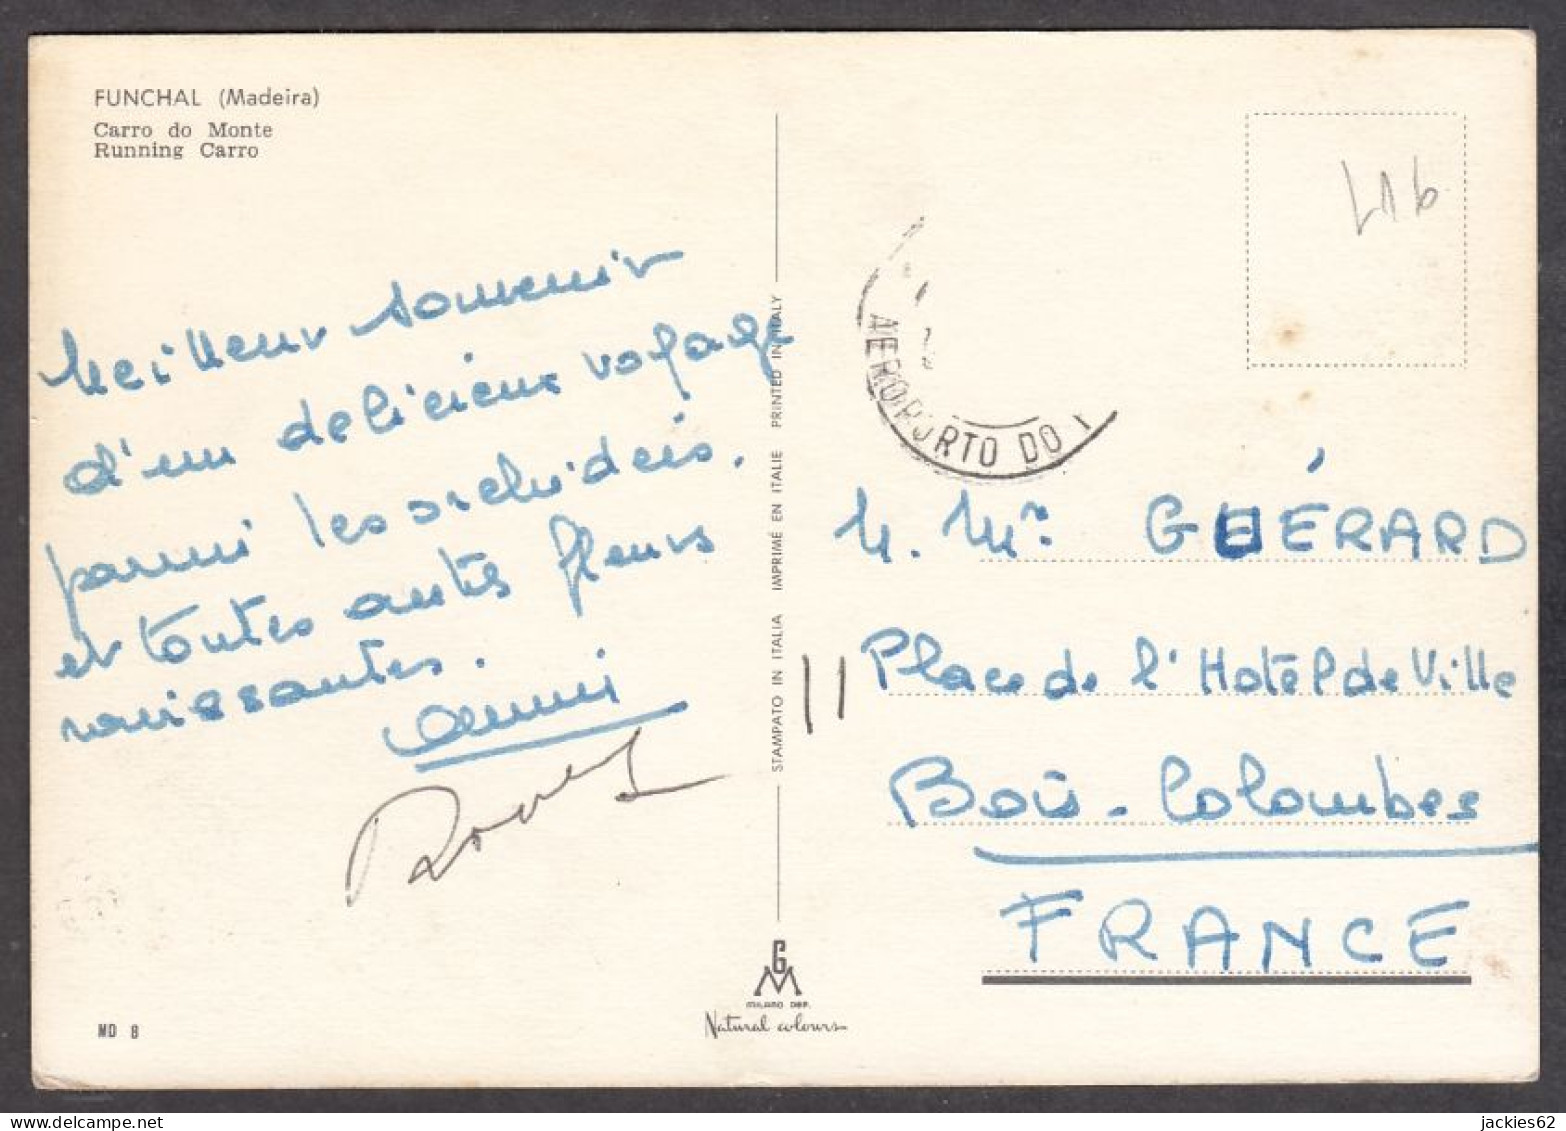 FUNCHAL (Madeira)
Carro do Monte
Running Carro
Meilleur souvenir
d'un delicieux voyage
parmi les orchideis.
et toutes autres fleurs
ravissantes.
MD 8
STAMPATO IN ITALIA IMPRIMÉ EN ITALIE PRINTED IN ITALY
GM
MILANO DEP.
Natural colours
AEROPORTO DO
M. Mr. GUÉRARD
11 Place de l'Hotel de Ville
Bois-Colombes
FRANCE
jackies62